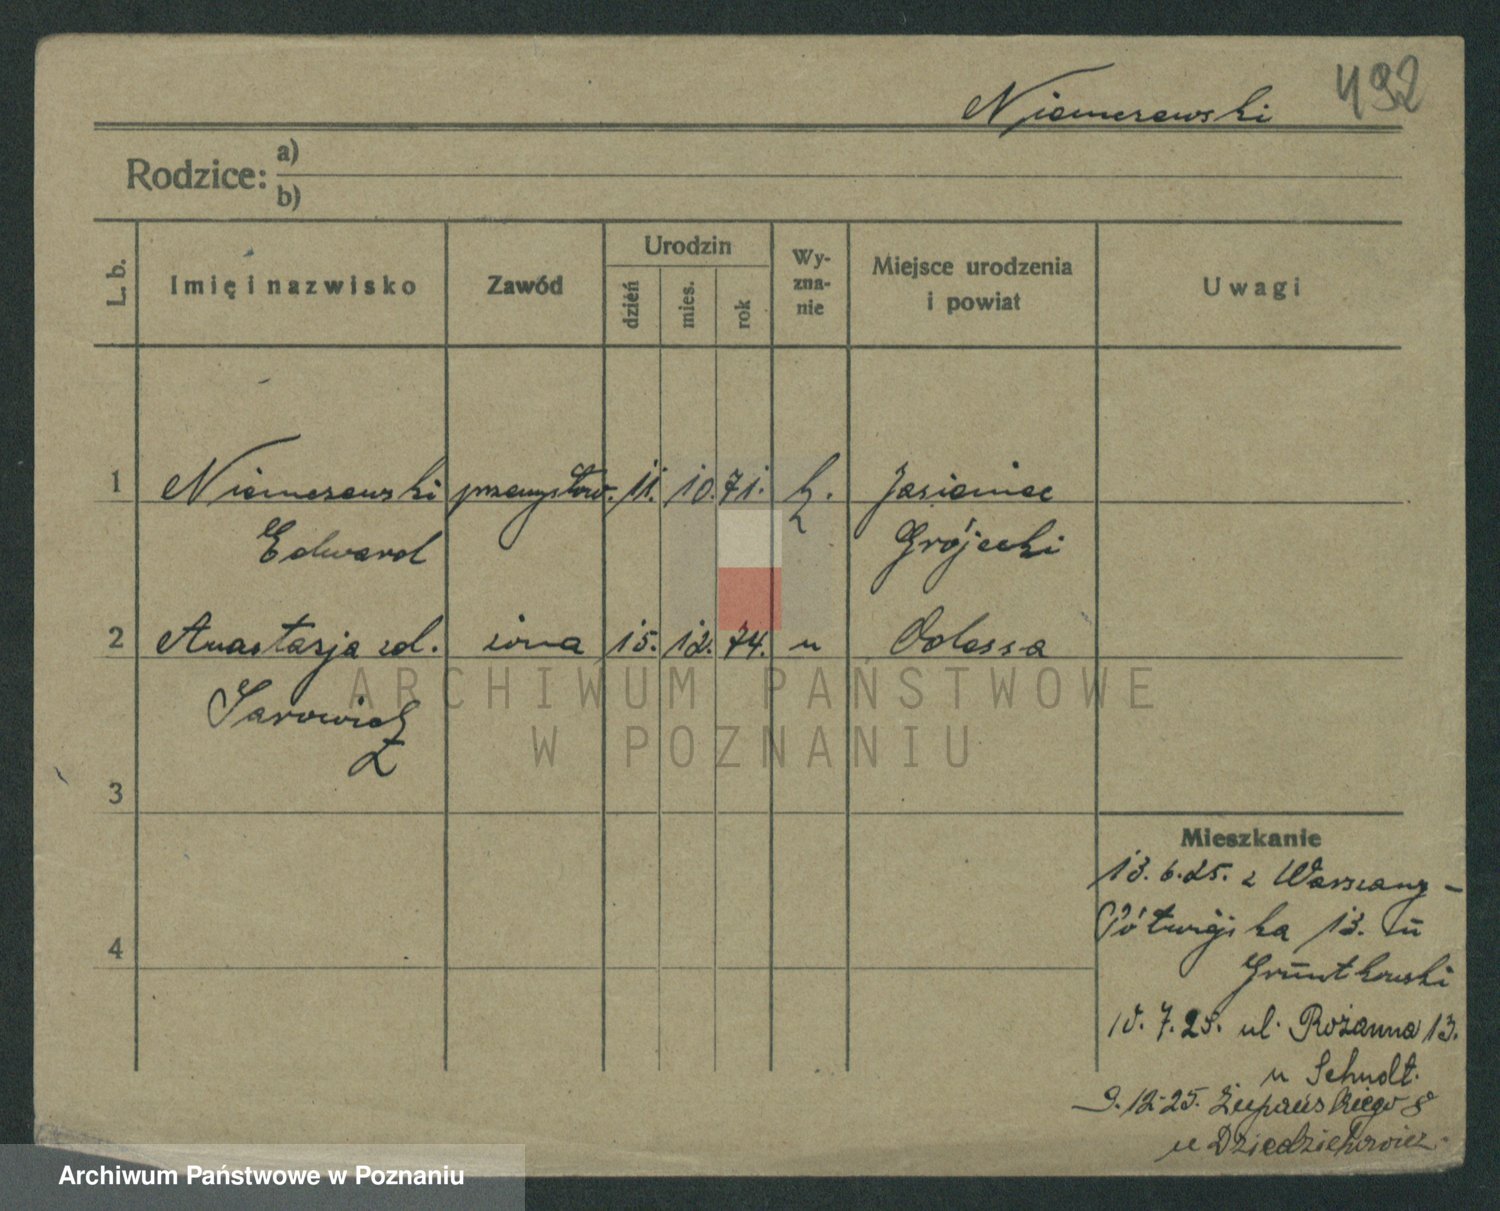 492
Niemczewski
Rodzice: a)
b)
L. b.
Imię i nazwisko
Zawód
Urodzin
dzień
mies.
rok
Wy-
zna-
nie
Miejsce urodzenia
i powiat
Uwagi
1 Niemczewski przemysłow. 11. 10. 71. k. Jasieniec
Edward Grójecki
2 Anastazja zd. żona 15. 12. 74. " Odessa
ARCHIWUM PAŃSTWOWE
W POZNANIU
3
Mieszkanie
13. 6. 25. z Warszawy -
Półwiejska 13. u
4
Gruntkowski
10. 7. 25. ul. Różanna 13.
u Schudt.
9. 12. 25. Żupańskiego 8
u
Archiwum Państwowe w Poznaniu